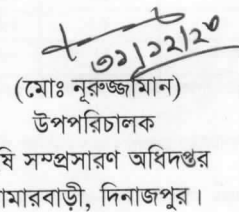 ৩১/১২/২০
(মোঃ নূরুজ্জামান)
উপপরিচালক
ষি সম্প্রসারণ অধিদপ্তর
ামারবাড়ী, দিনাজপুর।